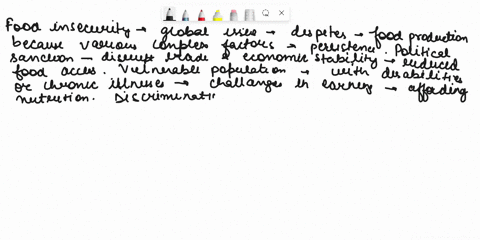 Food insecurity → global issue → despetes → food production
because various complex factors → persistence. Political
sanction → disrupt trade & economic stability → reduced
food acces. Vulnerable population → with disabilities
or chronic illnesses → challanges in earning → affording
nutrition. Discriminati